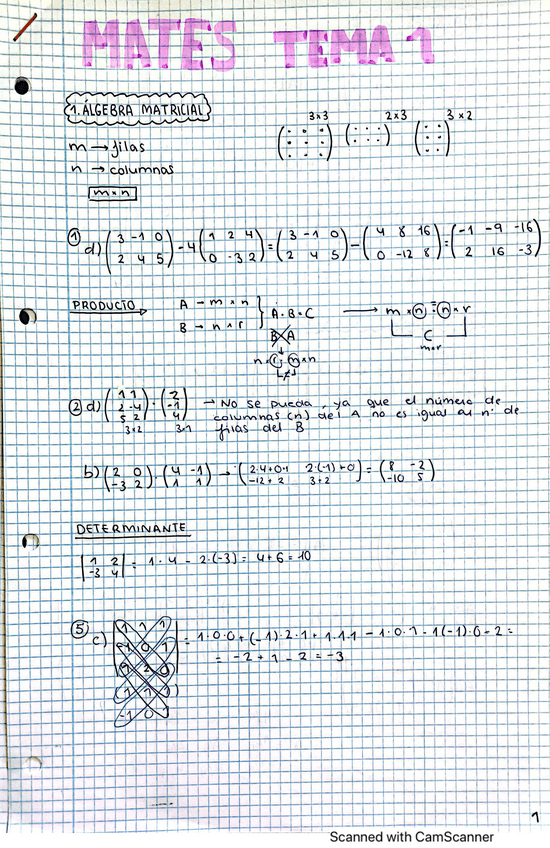 MATES TEMA 1
1. ÁLGEBRA MATRICIAL
3x3 2x3 3x2
m → filas
n → columnas
m x n
① d) (3 -1 0 / 2 4 5) - 4 (1 2 4 / 0 -3 2) = (3 -1 0 / 2 4 5) - (4 8 16 / 0 -12 8) = (-1 -9 -16 / 2 16 -3)
PRODUCTO → A → m x n } A · B = C → m x n = n x r
B → n x r
B X A
C
m x r
② d) (1 1 / 2 -4 / 5 2) · (2 / -1 / 4) → No se pueda, ya que el número de
columnas (n) del A no es igual al nº de
3x2 3x1 filas del B
b) (2 0 / -3 2) · (4 -1 / 1 1) → (2·4+0·1 2·(-1)+0 / -12+2 3+2) = (8 -2 / -10 5)
DETERMINANTE
|1 2 / -3 4| = 1·4 - 2·(-3) = 4+6 = 10
⑤ c) |1 1 1 / -1 0 1 / 1 2 0| = 1·0·0 + (-1)·2·1 + 1·1·1 - 1·0·1 - 1(-1)·0 - 2 =
1 1 1
-1 0 1
= -2 + 1 - 2 = -3
1
Scanned with CamScanner